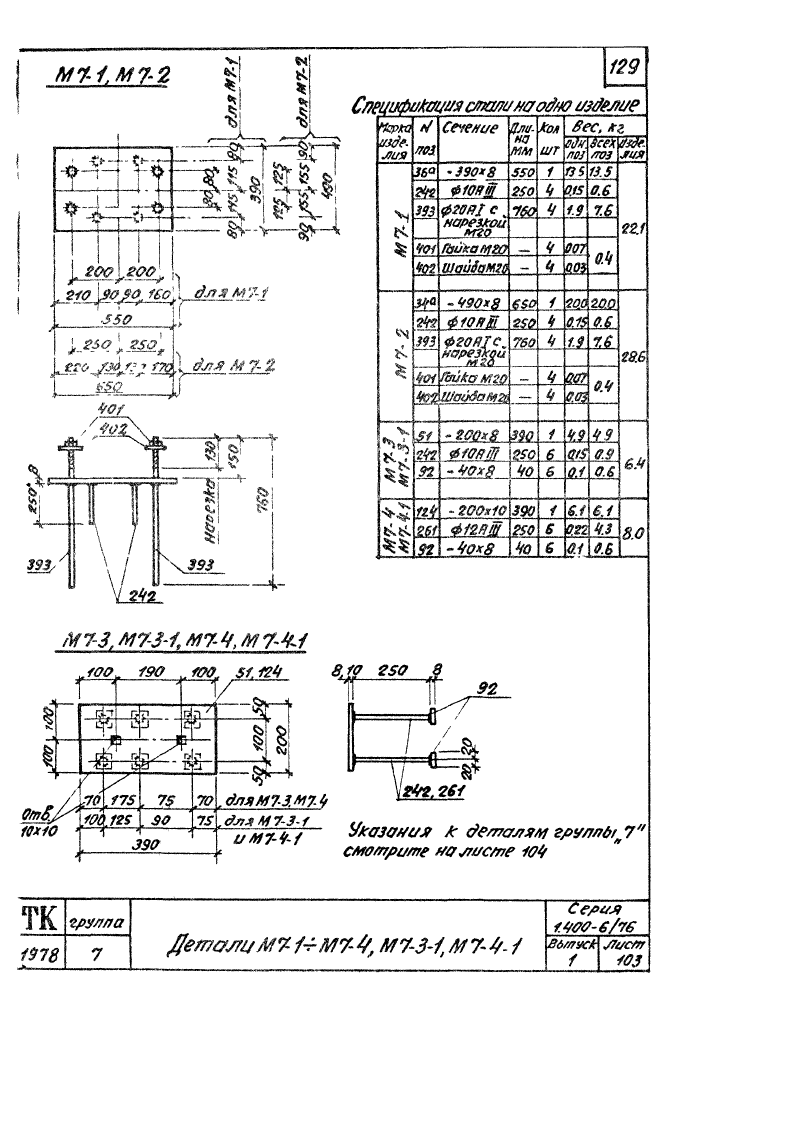 129
М7-1, М7-2
для М7-1
для М7-2
80 115 115 80
80 80
390
125 125
90 155 155 90
490
200 200
210 90 90 160
для М7-1
550
250 250
220 130 130 170
для М7-2
650
401
402
8
250
130
150
нарезка
760
393
393
242
Спецификация стали на одно изделие
Марка изделия | N поз | Сечение | Длина мм | Кол шт | Вес, кг
одн. поз | всех поз | изделия
М7-1
36а | -390×8 | 550 | 1 | 13.5 | 13.5
242 | ф10АIII | 250 | 4 | 0.15 | 0.6
393 | ф20АI с нарезкой М20 | 760 | 4 | 1.9 | 7.6
401 | Гайка М20 | — | 4 | 0.07
402 | Шайба М20 | — | 4 | 0.03
0.4
22.1
М7-2
34а | -490×8 | 650 | 1 | 20.0 | 20.0
242 | ф10АIII | 250 | 4 | 0.15 | 0.6
393 | ф20АI с нарезкой М20 | 760 | 4 | 1.9 | 7.6
401 | Гайка М20 | — | 4 | 0.07
402 | Шайба М20 | — | 4 | 0.03
0.4
28.6
М7-3
М7-3-1
51 | -200×8 | 390 | 1 | 4.9 | 4.9
242 | ф10АIII | 250 | 6 | 0.15 | 0.9
92 | -40×8 | 40 | 6 | 0.1 | 0.6
6.4
М7-4
М7-4-1
124 | -200×10 | 390 | 1 | 6.1 | 6.1
261 | ф12АIII | 250 | 6 | 0.22 | 4.3
92 | -40×8 | 40 | 6 | 0.1 | 0.6
8.0
М7-3, М7-3-1, М7-4, М7-4-1
100 190 100
51, 124
100 100
50 100 50
200
70 175 75 70 для М7-3, М7-4
100 125 90 75 для М7-3-1
и М7-4-1
390
Отв.
10×10
8,10 250 8
92
20 20
242, 261
Указания к деталям группы „7"
смотрите на листе 104
ТК
1978
группа
7
Детали М7-1÷М7-4, М7-3-1, М7-4-1
Серия
1.400-6/76
Выпуск
1
Лист
103